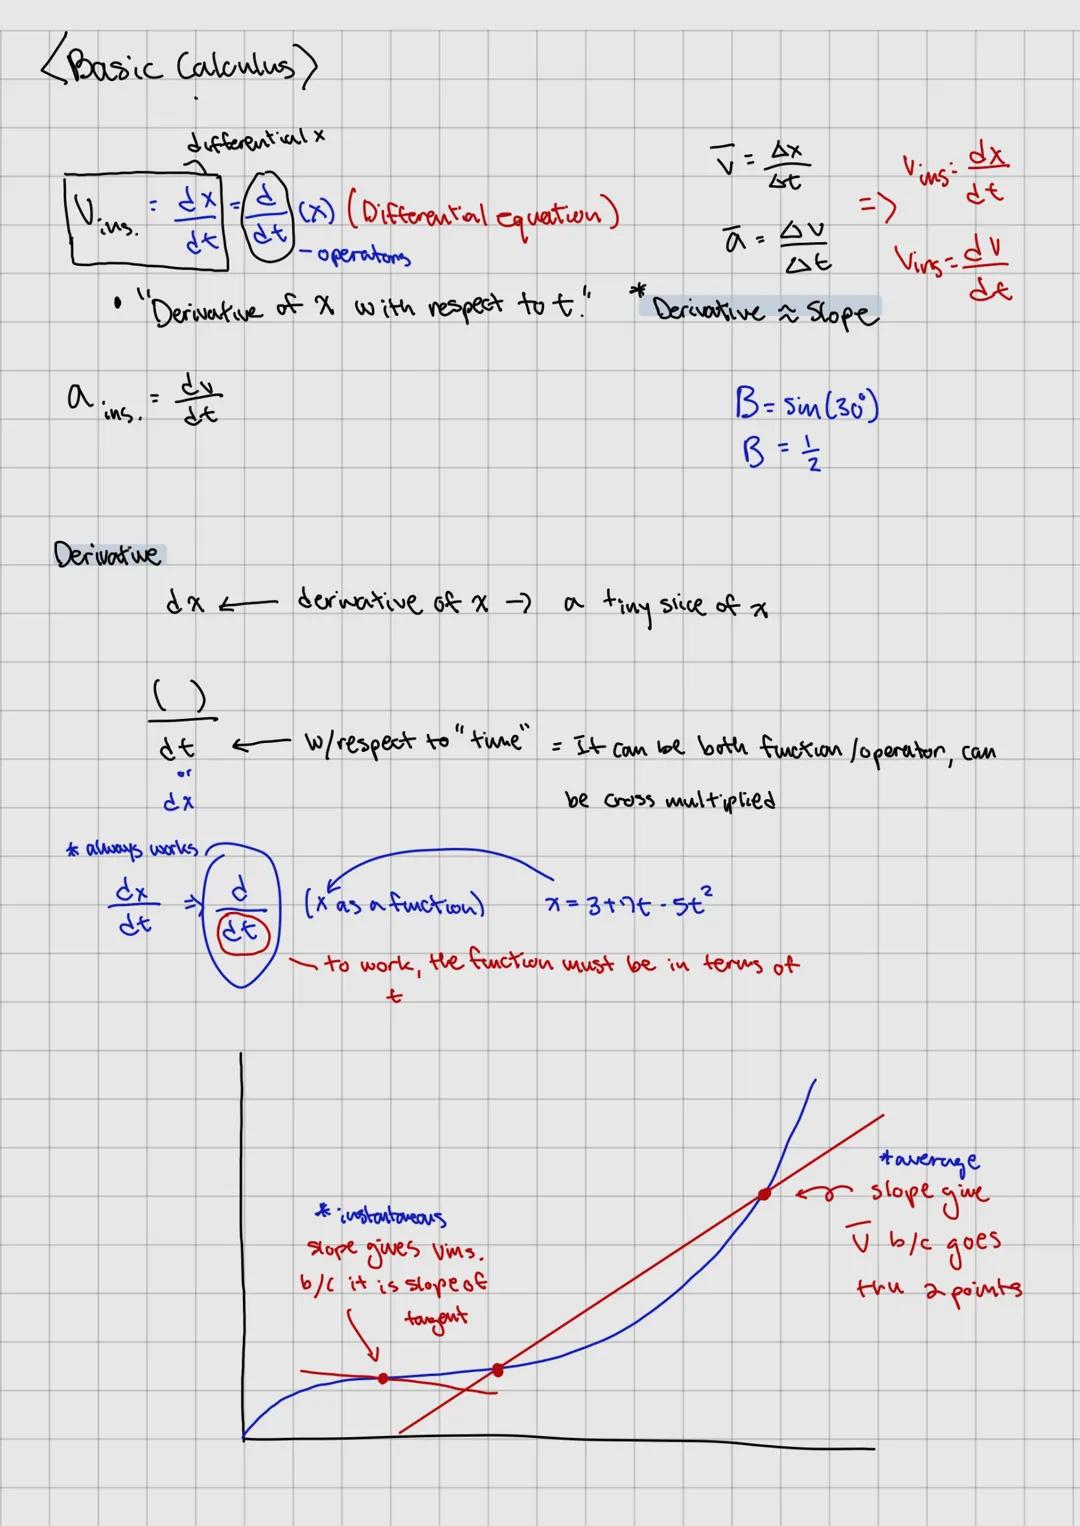 <Basic Calculus>
differential x
V ins. = dx/dt = d/dt (x) (Differential equation)
- operators
v̅ = Δx/Δt => Vins = dx/dt
a̅ = Δv/Δt Vins = dv/dt
• "Derivative of x with respect to t." * Derivative ≈ Slope
a ins. = dv/dt
B = sin(30°)
B = 1/2
Derivative
dx ← derivative of x → a tiny slice of x
( )
dt ← w/respect to "time" = It can be both function/operator, can
or
dx be cross multiplied
* always works
dx/dt => d/dt (x as a function) x = 3+7t - 5t²
to work, the function must be in terms of
t
* instantaneous
slope gives Vins.
b/c it is slope of
tangent
* average
slope give
v̅ b/c goes
thru 2 points